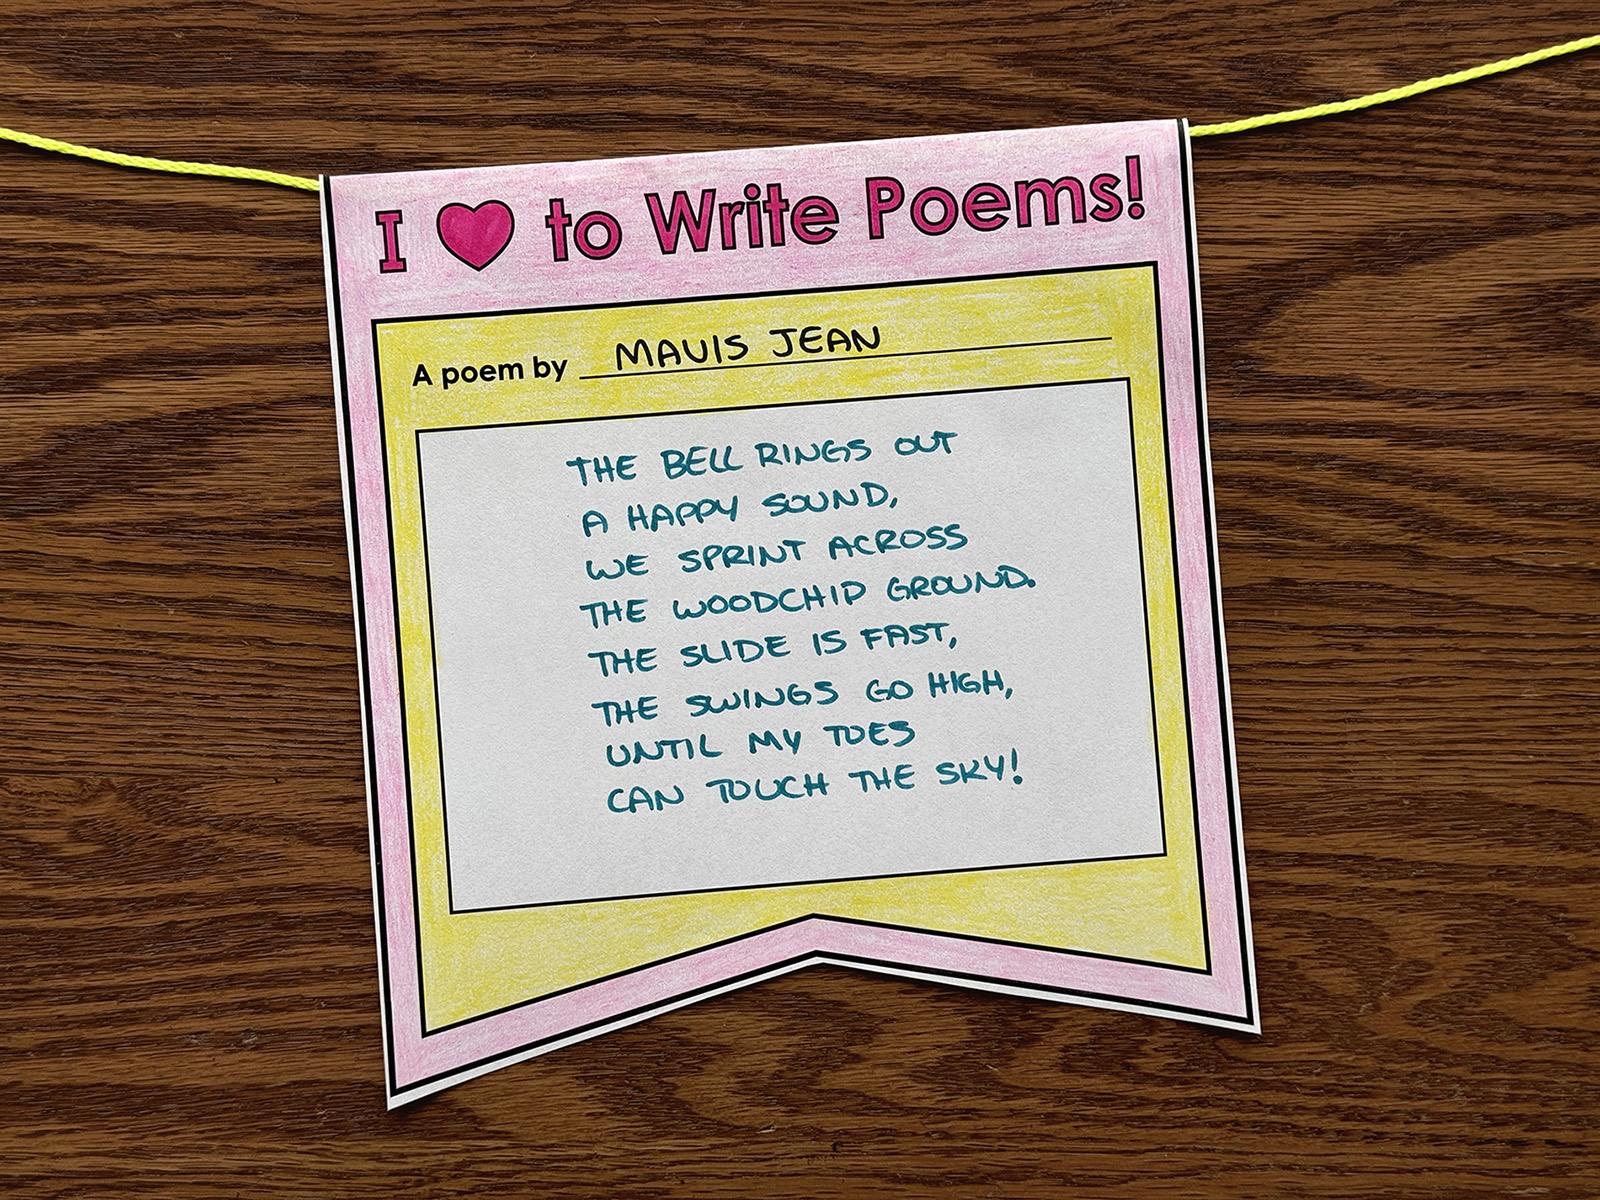 I ♥ to Write Poems!
A poem by MAVIS JEAN
THE BELL RINGS OUT
A HAPPY SOUND,
WE SPRINT ACROSS
THE WOODCHIP GROUND.
THE SLIDE IS FAST,
THE SWINGS GO HIGH,
UNTIL MY TOES
CAN TOUCH THE SKY!